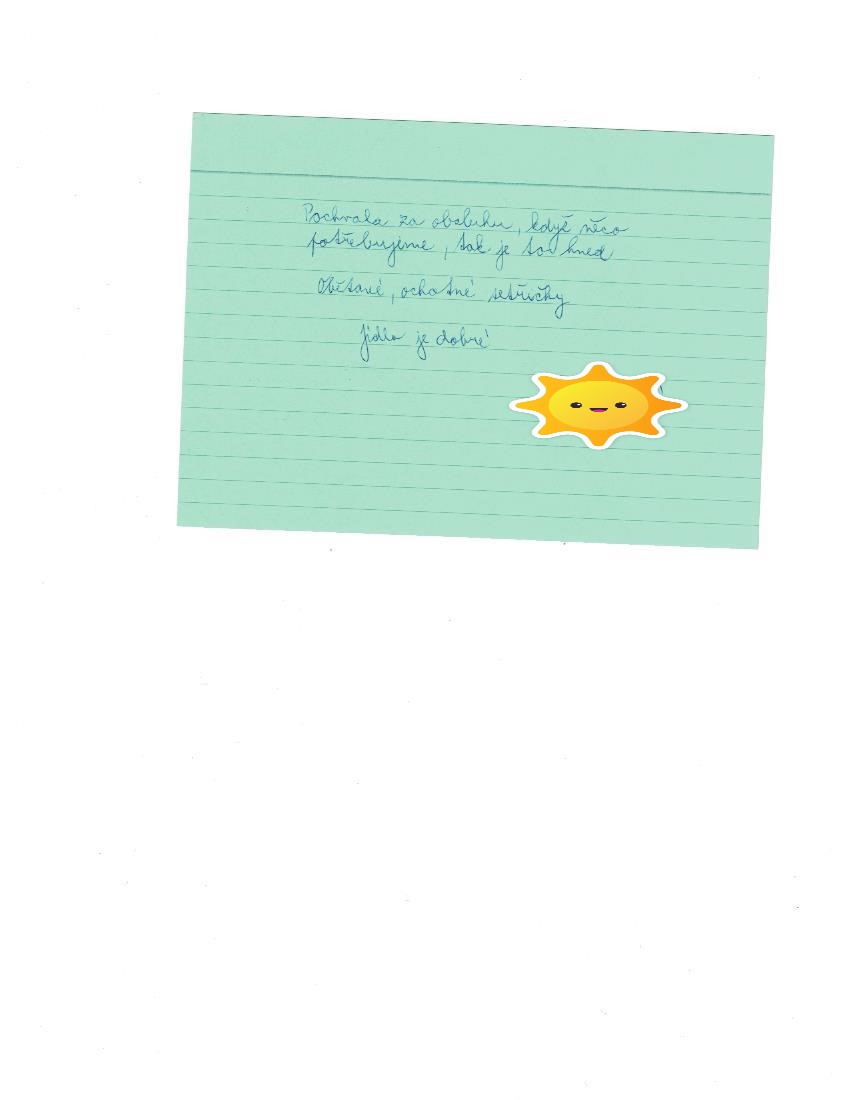 Pochvala za obsluhu, když něco
potřebujeme, tak je to hned
Obětavé, ochotné sestřičky
Jídlo je dobré